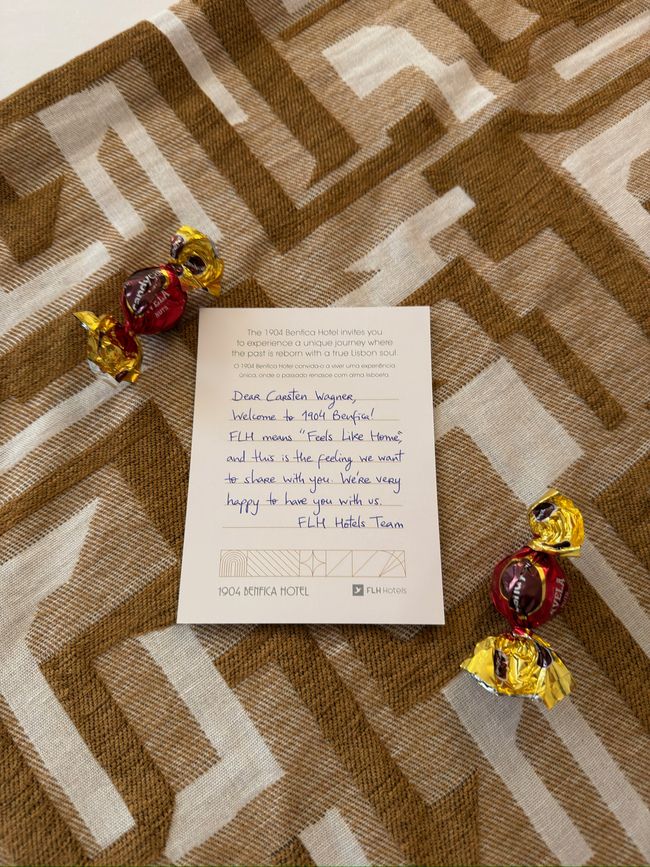 The 1904 Benfica Hotel invites you
to experience a unique journey where
the past is reborn with a true Lisbon soul.
O 1904 Benfica Hotel convida-o a viver uma experiência
única, onde o passado renasce com alma lisboeta.
Dear Carsten Wagner,
Welcome to 1904 Benfica!
FLH means "Feels Like Home",
and this is the feeling we want
to share with you. We're very
happy to have you with us.
FLH Hotels Team
1904 BENFICA HOTEL
FLH Hotels